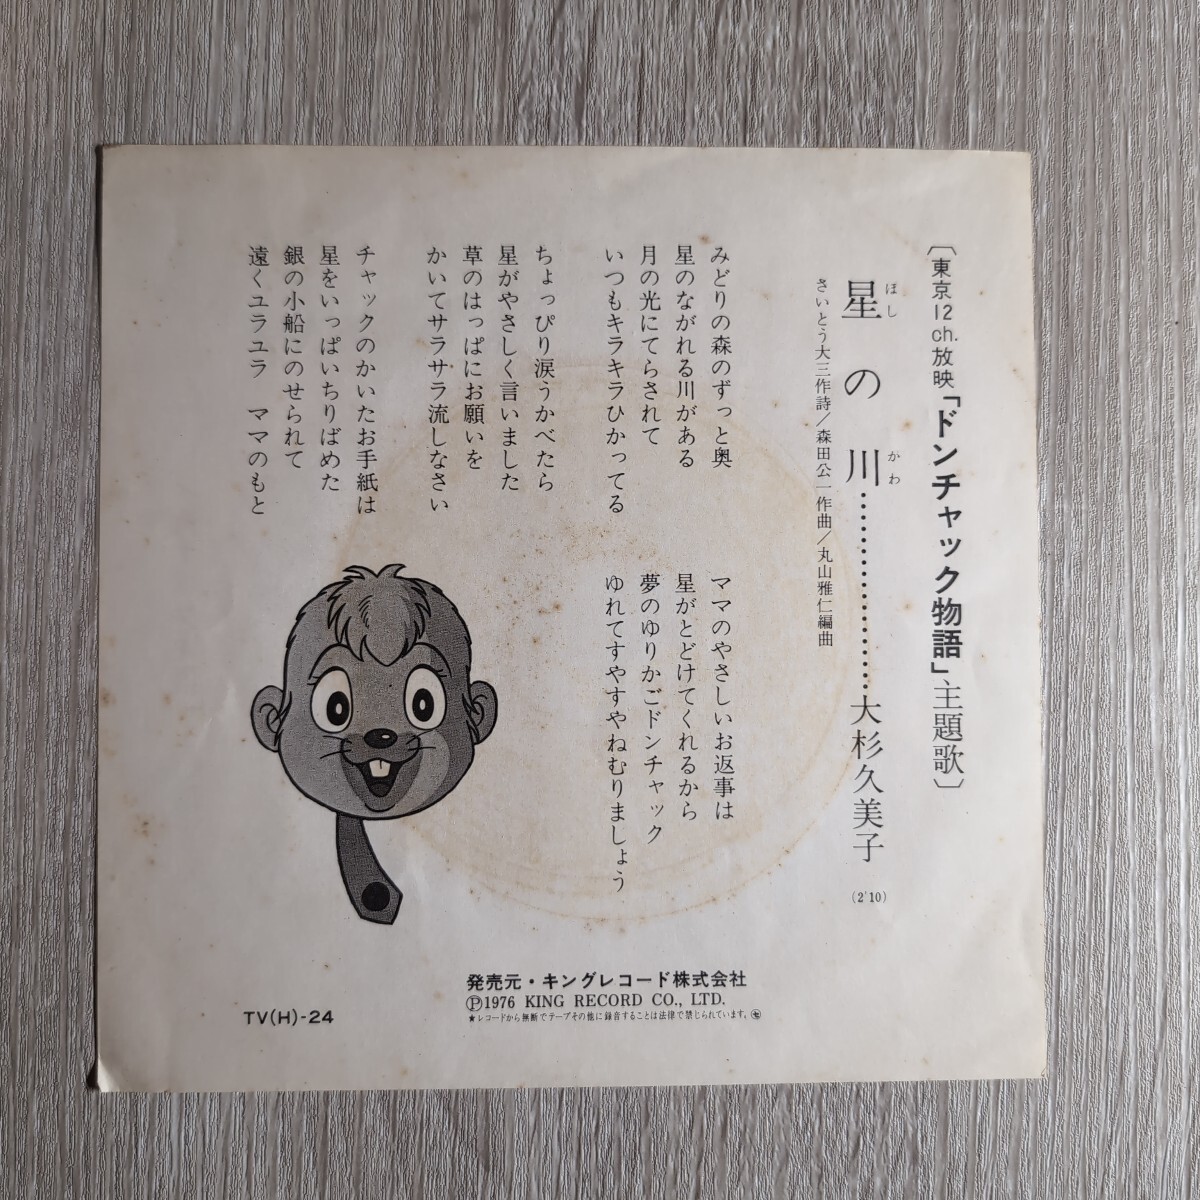 〔東京12ch.放映「ドンチャック物語」主題歌〕
星の川………………大杉久美子
ほし
かわ
(2'10)
さいとう大三作詩/森田公一作曲/丸山雅仁編曲
みどりの森のずっと奥
星のながれる川がある
月の光にてらされて
いつもキラキラひかってる
ちょっぴり涙うかべたら
星がやさしく言いました
草のはっぱにお願いを
かいてサラサラ流しなさい
チャックのかいたお手紙は
星をいっぱいちりばめた
銀の小船にのせられて
遠くユラユラ ママのもと
ママのやさしいお返事は
星がとどけてくれるから
夢のゆりかごドンチャック
ゆれてすやすやねむりましょう
発売元・キングレコード株式会社
Ⓟ1976 KING RECORD CO., LTD.
★レコードから無断でテープその他に録音することは法律で禁じられています。
TV(H)-24